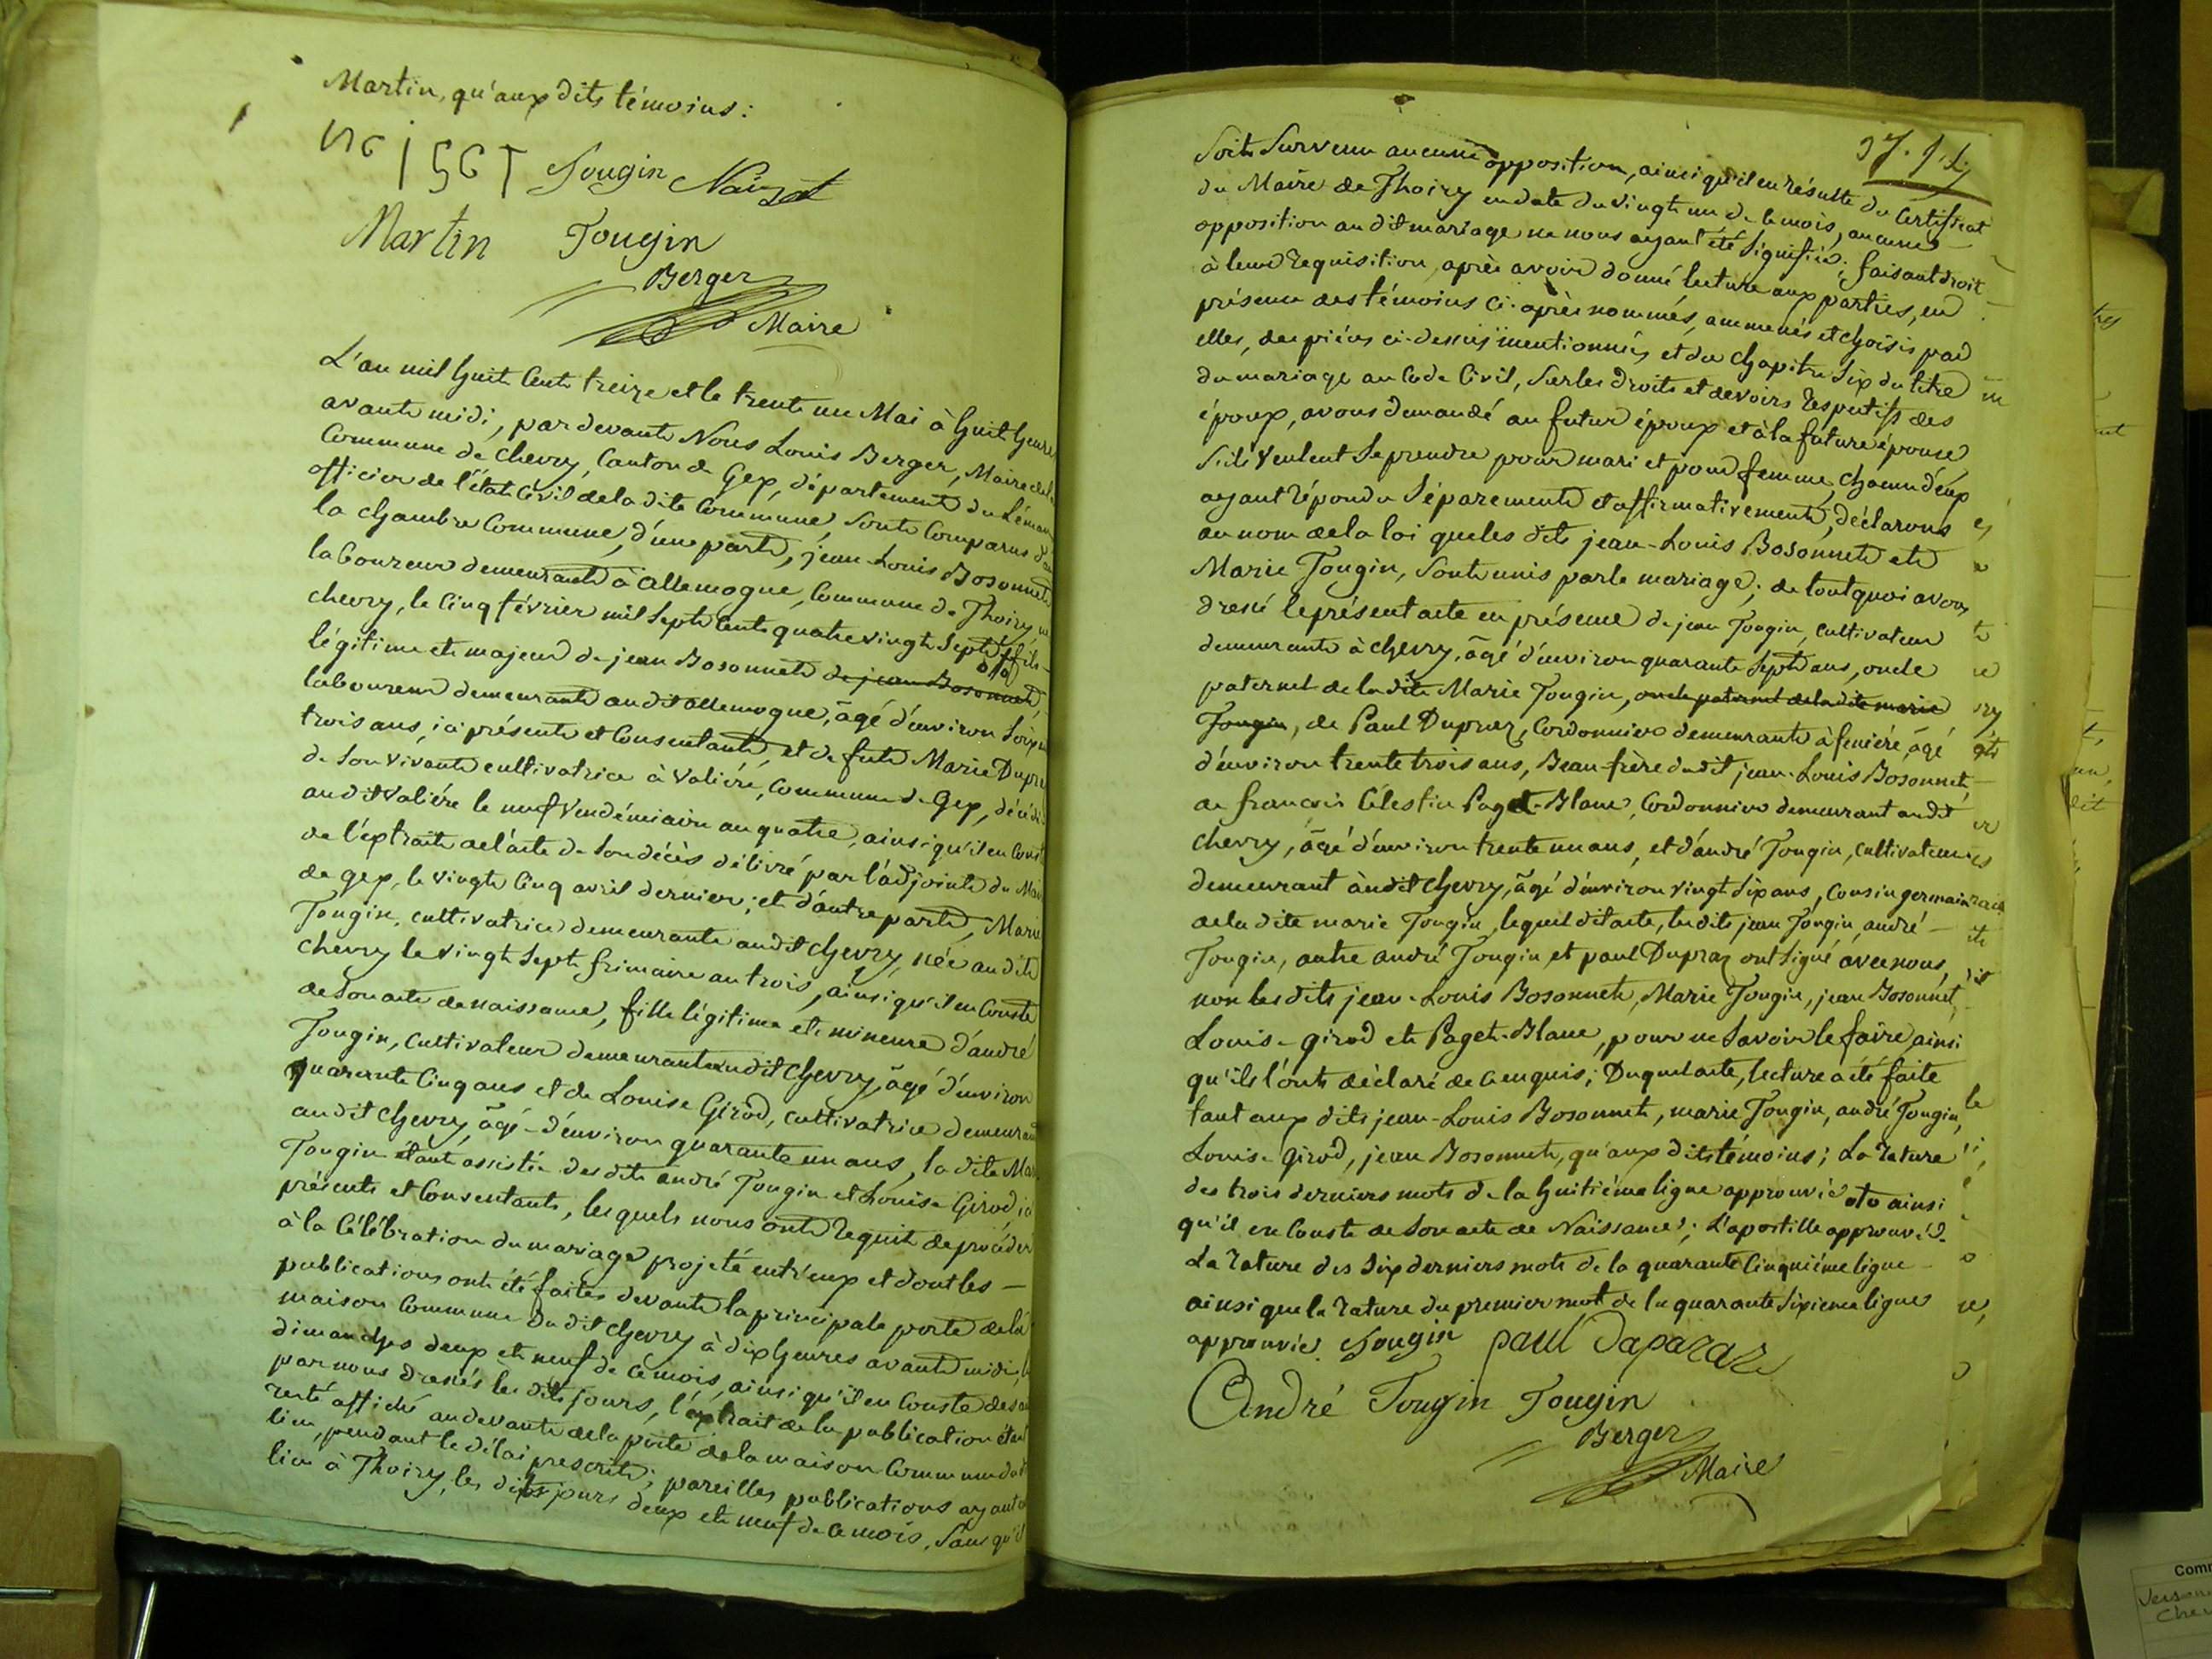 Martin, qu'aux dits témoins:
Tougin
Martin Tougin
Berger
Maire
L'an mil huit cents treize et le trente un Mai à huit heures
avants midi, pardevants Nous Louis Berger, Maire de la
Commune de Chevry, Canton de Gex, départements du Léman
officier de l'état Civil de la dite Commune, sonts Comparus dans
la chambre Commune, d'une parts, jean-Louis Bosonnets
laboureur demeurants à allemogne, Commune de Thoiry né
chevry, le Cinq février mil Septs Cents quatre vingts Septs fils
légitime ets majeur de jean Bosonnets de jean Bosonnets,
laboureur demeurants audit allemogne, âgé d'environ Soixante
trois ans, ici présents et Consentants, et de fute Marie Dupraz
de Son vivants cultivatrice à Valiére, Commune de Gex, décédée
audit Valiére le neuf Vendémiaire an quatre, ainsi qu'il en Conste
de l'extraits de l'acte de Son décès délivré par l'adjoints du Maire
de gex, le vingts Cinq avril dernier; ets d'autre parts, Marie
Tougin, cultivatrice demeurante audit chevry, née audits
chevry le vingts Septs frimaire an trois, ainsi qu'il en Conste
de Son acte de naissance, fille légitime ets mineure d'andré
Tougin, Cultivateur demeurants audit Chevry, âgé d'environ
quarante Cinq ans et de Louise Girod, cultivatrice demeurant
audit chevry, âgé d'environ quarante un ans, la dite Marie
Tougin étant assistée des dits andré Tougin et Louise Girod, ici
présents et Consentants, lesquels nous onts requis de procéder
à la Célébration du mariage projeté entr'eux et dont les
publications onts été faites devants la principale porte de la
maison Commune dudit chevry à dix heures avants midi, les
dimanches deux ets neuf de ce mois, ainsi qu'il en Conste des actes
par nous dressés les dits jours, l'extrait de la publication étant
resté affiché au devants de la porte de la maison Commune dudit
lieu, pendant le délai prescrits; pareilles publications ayant eu
lieu à Thoiry, les dits jours deux ets neuf de ce mois, Sans qu'il
37. J.L.
Soits Survenu aucune opposition, ainsi qu'il en résulte du Certificat
du Maire de Thoiry en date du vingts un de ce mois, aucune
opposition audit mariage ne nous ayant été Signifiée; faisant droit
à leur requisition, après avoir donné lecture aux parties, en
présence des témoins ci-après nommés, ammenés et choisis par
elles, des piéces ci-dessus mentionnées et du Chapitre Six du titre
du mariage au Code Civil, Sur les droits et devoirs respectifs des
époux, avons demandé au futur époux et à la future épouse
S'ils veulent Se prendre pour mari et pour femme, chacun d'eux
ayant répondu Séparements et affirmativements, déclarons
au nom de la loi que les dits jean-Louis Bosonnets ets
Marie Tougin, sonts unis par le mariage; de tout quoi avons
dressé le présent acte en présence de jean Tougin, cultivateur
demeurants à chevry, âgé d'environ quarante Septs ans, oncle
paternel de la dite Marie Tougin, oncle paternel de la dite marie
Tougin, de Paul Dupraz, Cordonnier demeurants à feniére, âgé
d'environ trente trois ans, Beau-frère dudit jean-Louis Bosonnet,
de françois Célestin Paget-Blanc, Cordonnier demeurant audit
chevry, âgé d'environ trente un ans, et d'andré Tougin, cultivateur
demeurant audit chevry, âgé d'environ vingt Six ans, Cousin germain
de la dite marie Tougin, lequel dit acte, les dits jean Tougin, andré
Tougin, autre andré Tougin et paul Dupraz ont Signé avec nous,
non les dits jean-Louis Bosonnets, Marie Tougin, jean Bosonnet,
Louise girod ets Paget-Blanc, pour ne Savoir le faire ainsi
qu'ils l'onts déclaré de ce enquis; Duquel acte, lecture a été faite
tant aux dits jean-Louis Bosonnets, marie Tougin, andré Tougin,
Louise Girod, jean Bosonnets, qu'aux dits témoins; La rature
des trois derniers mots de la huitiéme ligne approuvée ainsi
qu'il en Conste de Son acte de Naissance; L'apostille approuvée.
La rature des Six derniers mots de la quarante Cinquiéme ligne
ainsi que la rature du premier mot de la quarante Sixieme ligne
approuvée. Tougin paul Daparaz
André Tougin Tougin
Berger
Maire